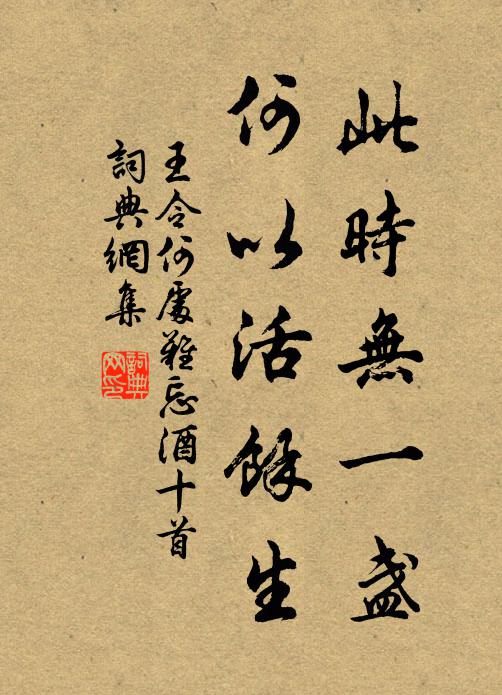 此時無一盞
何以活餘生
王令何處難忘酒十首
詞典網集
詞典
网印